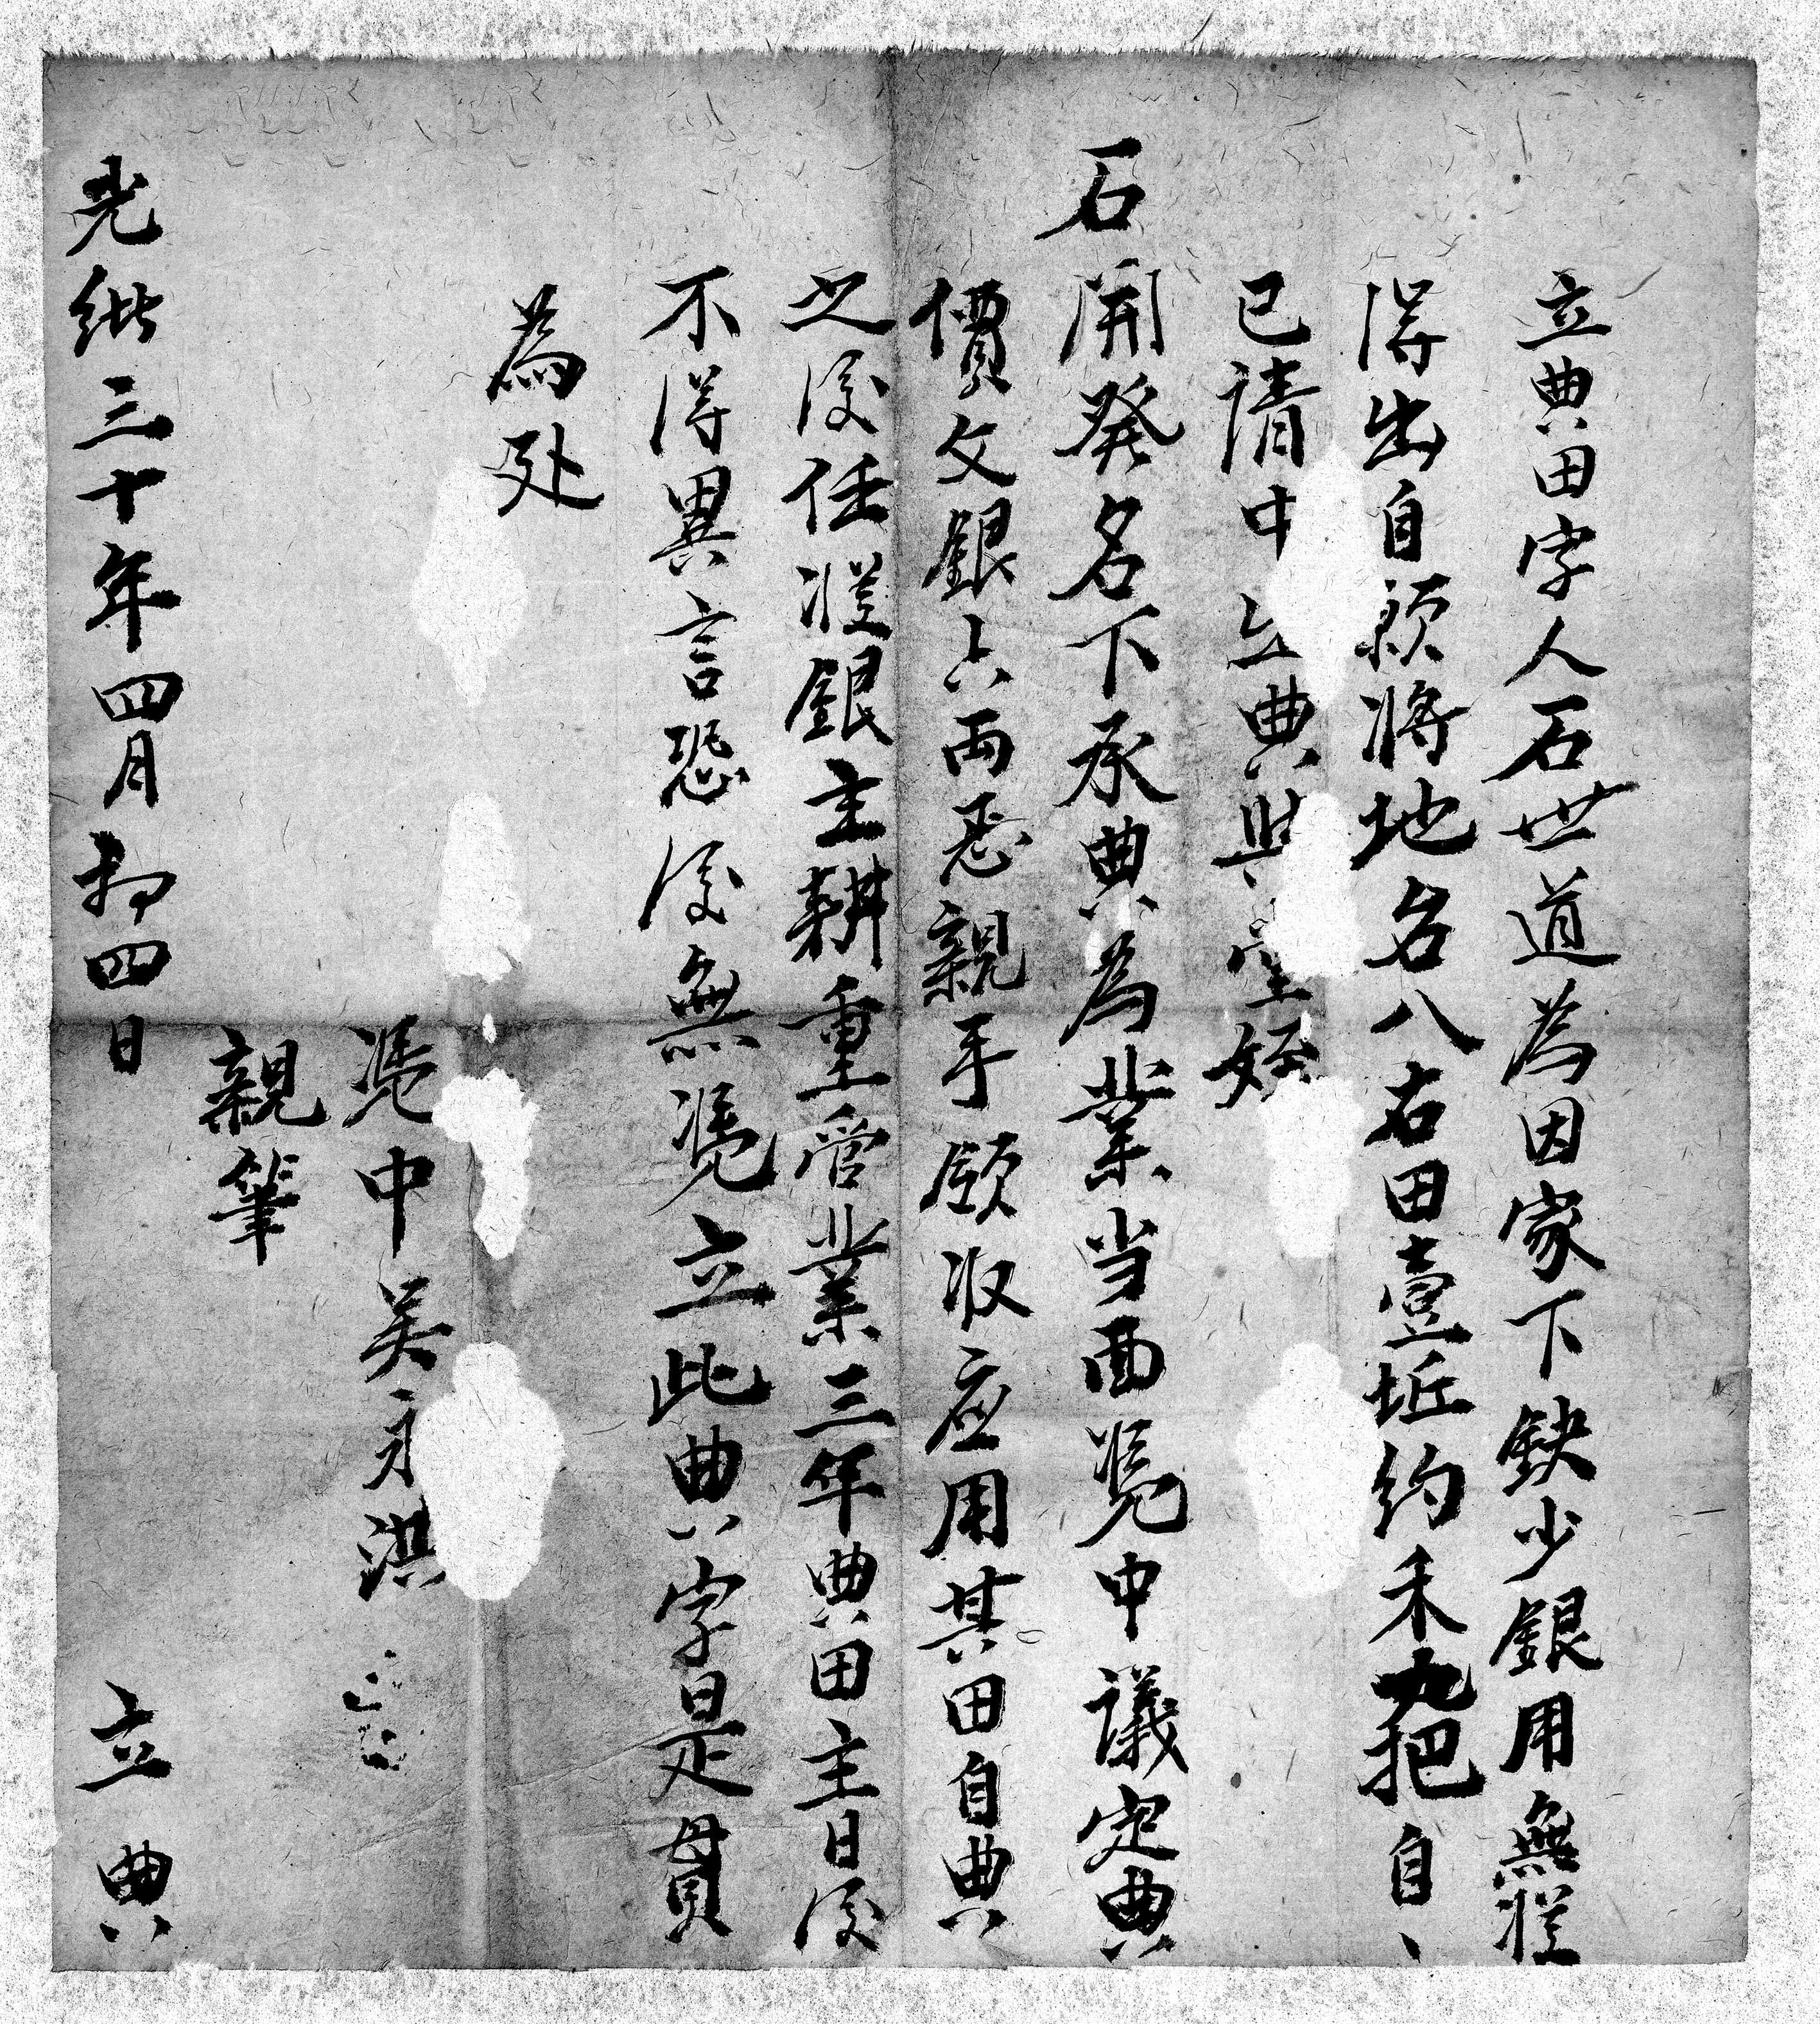 立典田字人石世道為因家下缺少銀用無從
得出自願將地名八右田壹坵約禾九把自、
已請中立典與堂姪
石開發名下承典為業当面凭中議定典
價文銀六両悉親手領收应用其田自典
之後任從銀主耕重管業三年典田主日後
不得異言恐後無凭立此典字是貫
為处
凭中吴永洪
親筆
光緒三十年四月初四日 立典